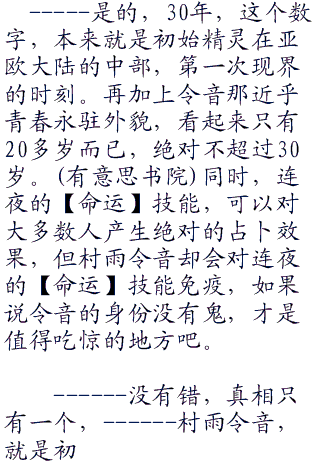 -----是的，30年，这个数
字，本来就是初始精灵在亚
欧大陆的中部，第一次现界
的时刻。再加上令音那近乎
青春永驻外貌，看起来只有
20多岁而已，绝对不超过30
岁。(有意思书院)同时，连
夜的【命运】技能，可以对
大多数人产生绝对的占卜效
果，但村雨令音却会对连夜
的【命运】技能免疫，如果
说令音的身份没有鬼，才是
值得吃惊的地方吧。
------没有错，真相只
有一个，------村雨令音，
就是初